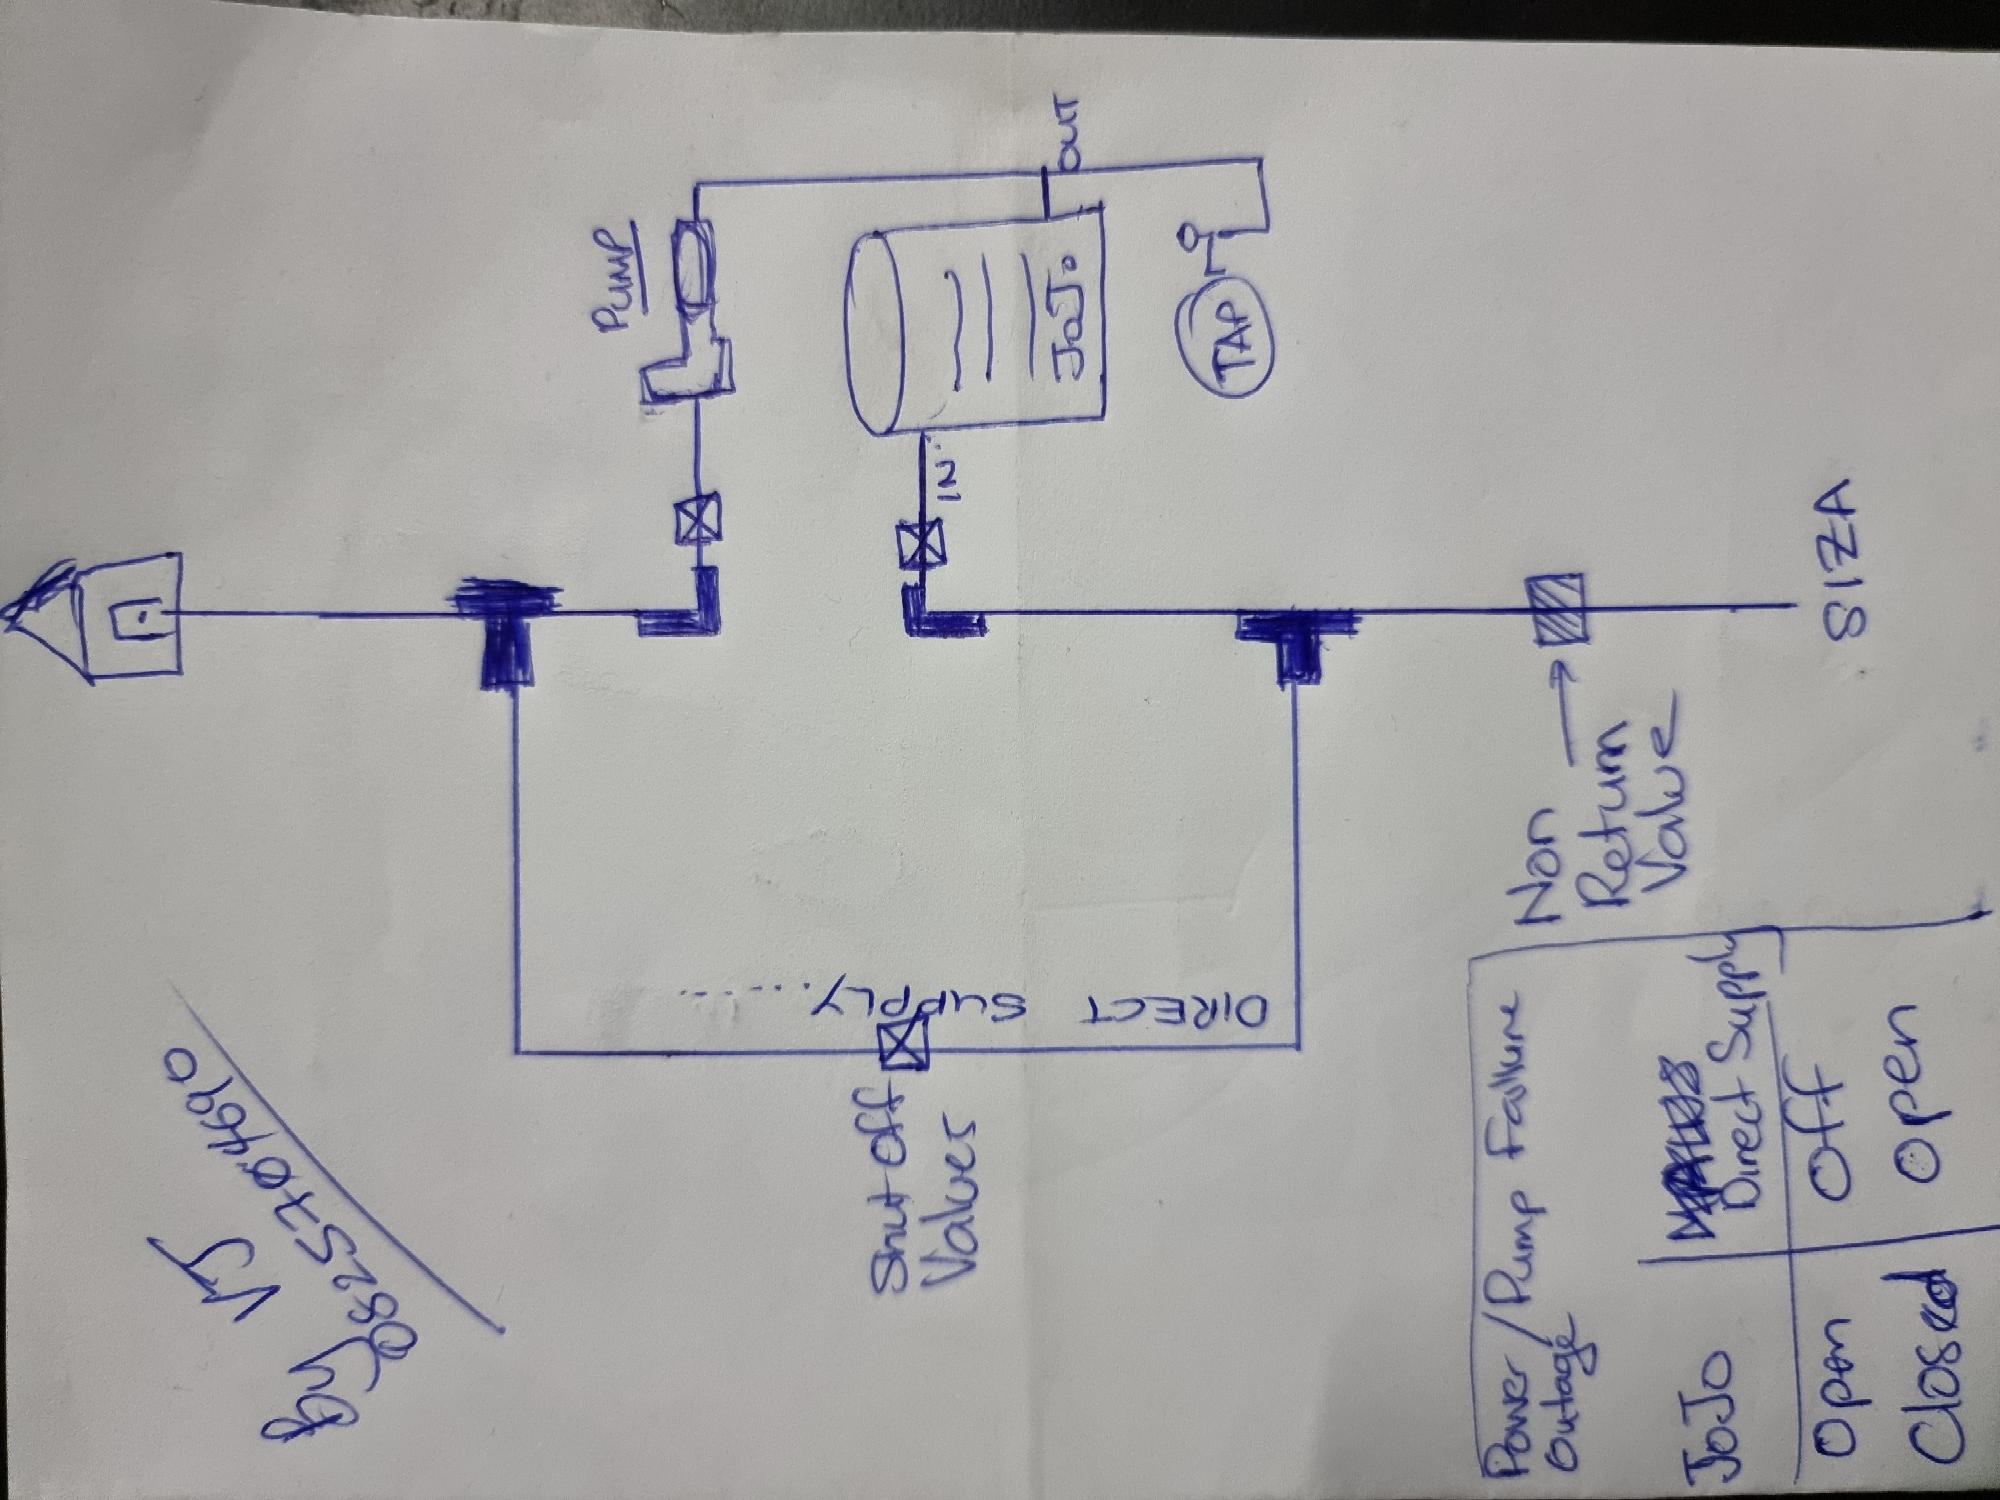 By VJ
0825704690
PUMP
Shut off
Valves
DIRECT SUPPLY.......
IN
JoJo
OUT
TAP
Non
Return
Valve
Power/Pump Failure
Outage
JoJo Direct Supply
Open Off
Closed Open
SIZA